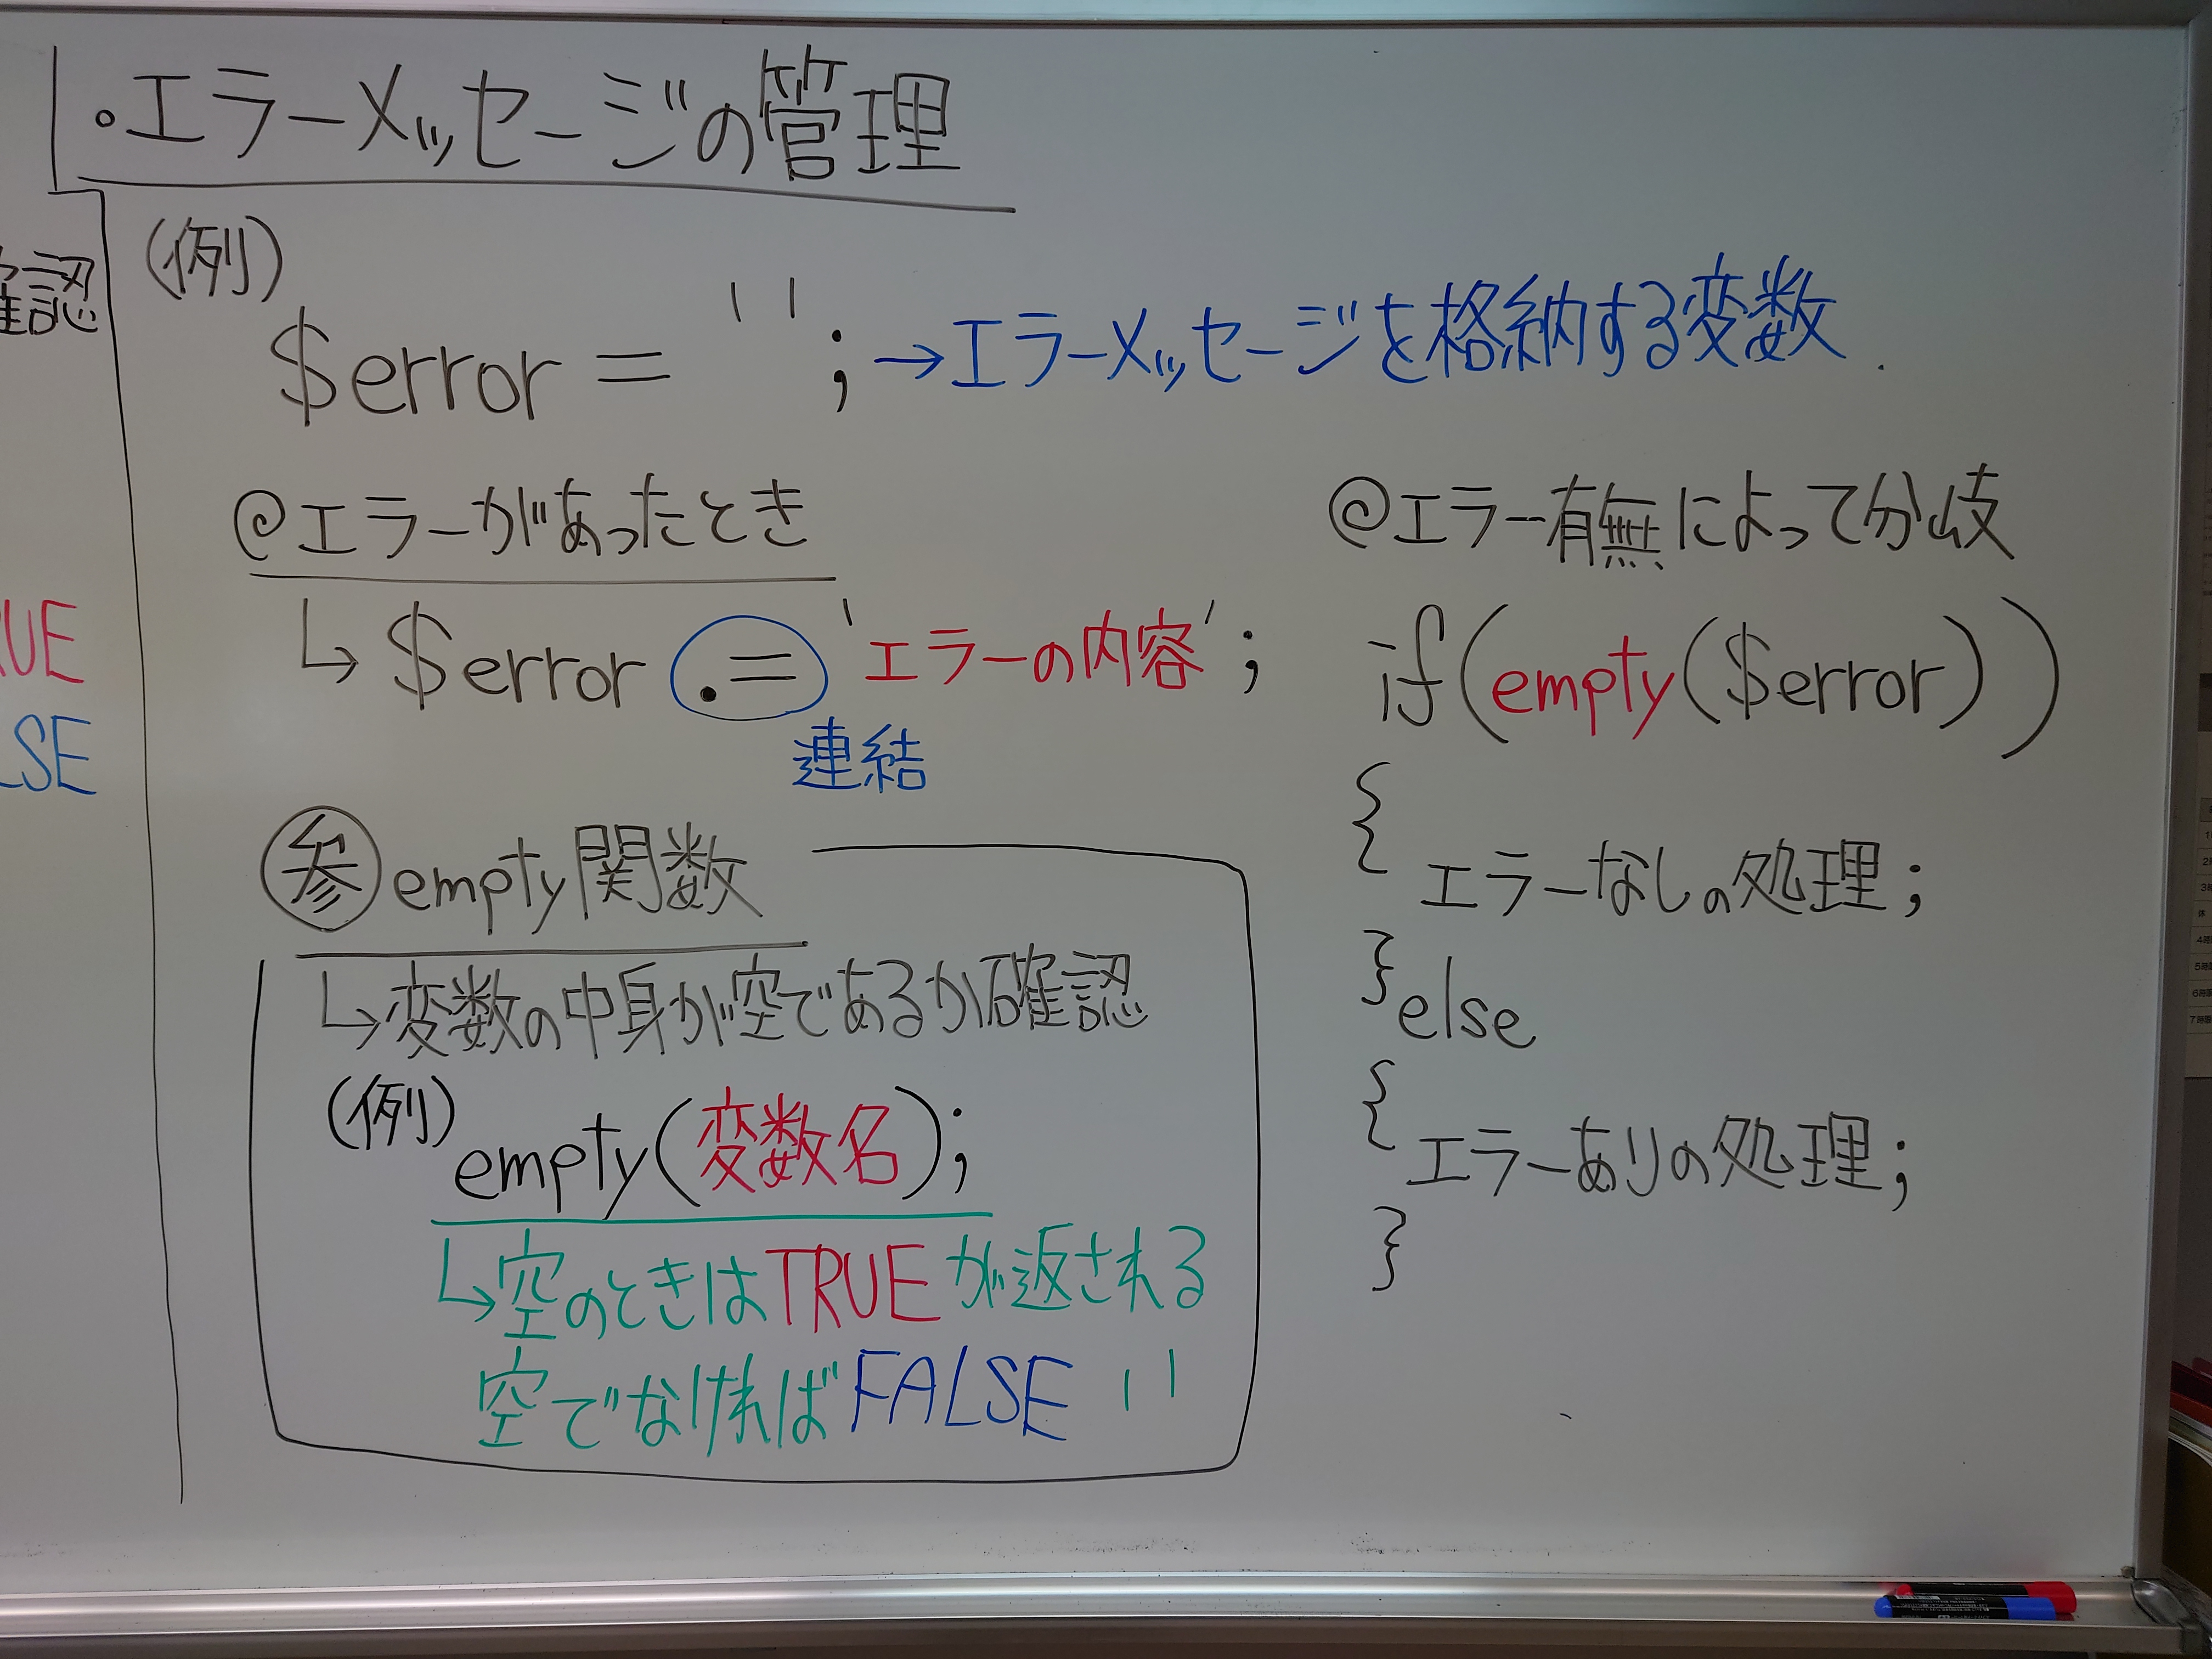 。エラーメッセージの管理
確認
(例)
$error = '';→エラーメッセージを格納する変数
@エラーがあったとき
↳ $error .= 'エラーの内容';
連結
RUE
LSE
参 empty関数
↳変数の中身が空であるか確認
(例)
empty(変数名);
↳空のときはTRUEが返される
空でなければFALSE 〃
@エラー有無によって分岐
if(empty($error))
{
エラーなしの処理;
}else
{
エラーありの処理;
}